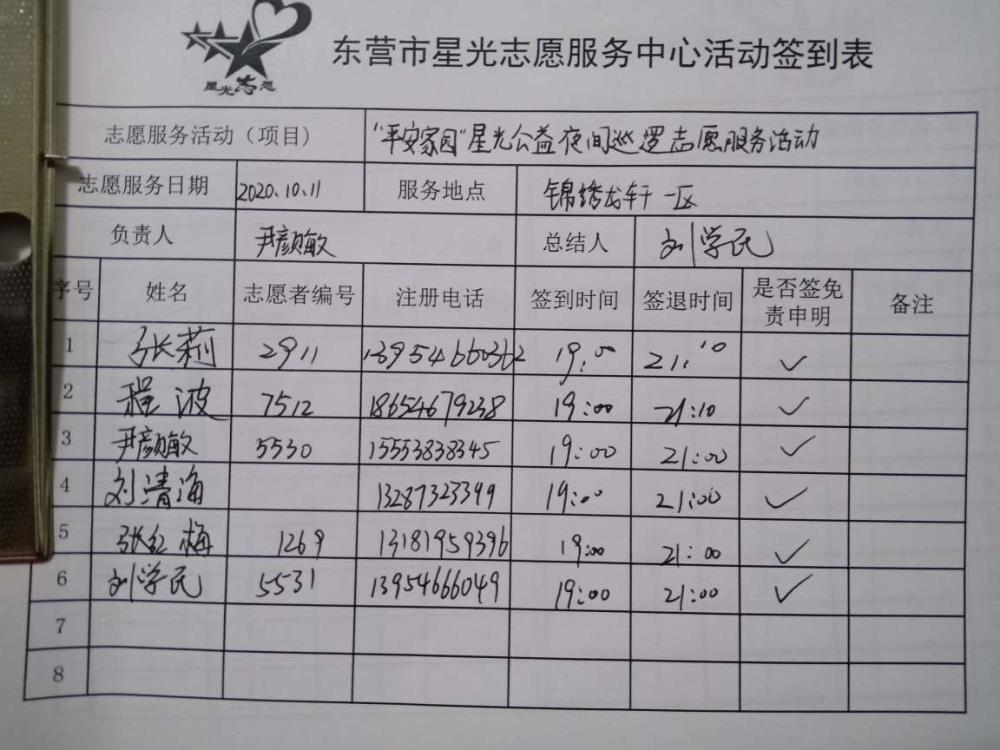 星光志愿
东营市星光志愿服务中心活动签到表
志愿服务活动（项目） "平安家园"星光公益夜间巡逻志愿服务活动
志愿服务日期 2020.10.11 服务地点 锦绣龙轩一区
负责人 尹彦敏 总结人 刘学民
序号 姓名 志愿者编号 注册电话 签到时间 签退时间 是否签免责申明 备注
1 张莉 2911 13954660362 19:00 21:10 ✓
2 程波 7512 18654679238 19:00 21:10 ✓
3 尹彦敏 5530 15553838345 19:00 21:00 ✓
4 刘清海 13287323399 19:00 21:00 ✓
5 张红梅 1269 13181959396 19:00 21:00 ✓
6 刘学民 5531 13954666049 19:00 21:00 ✓
7
8